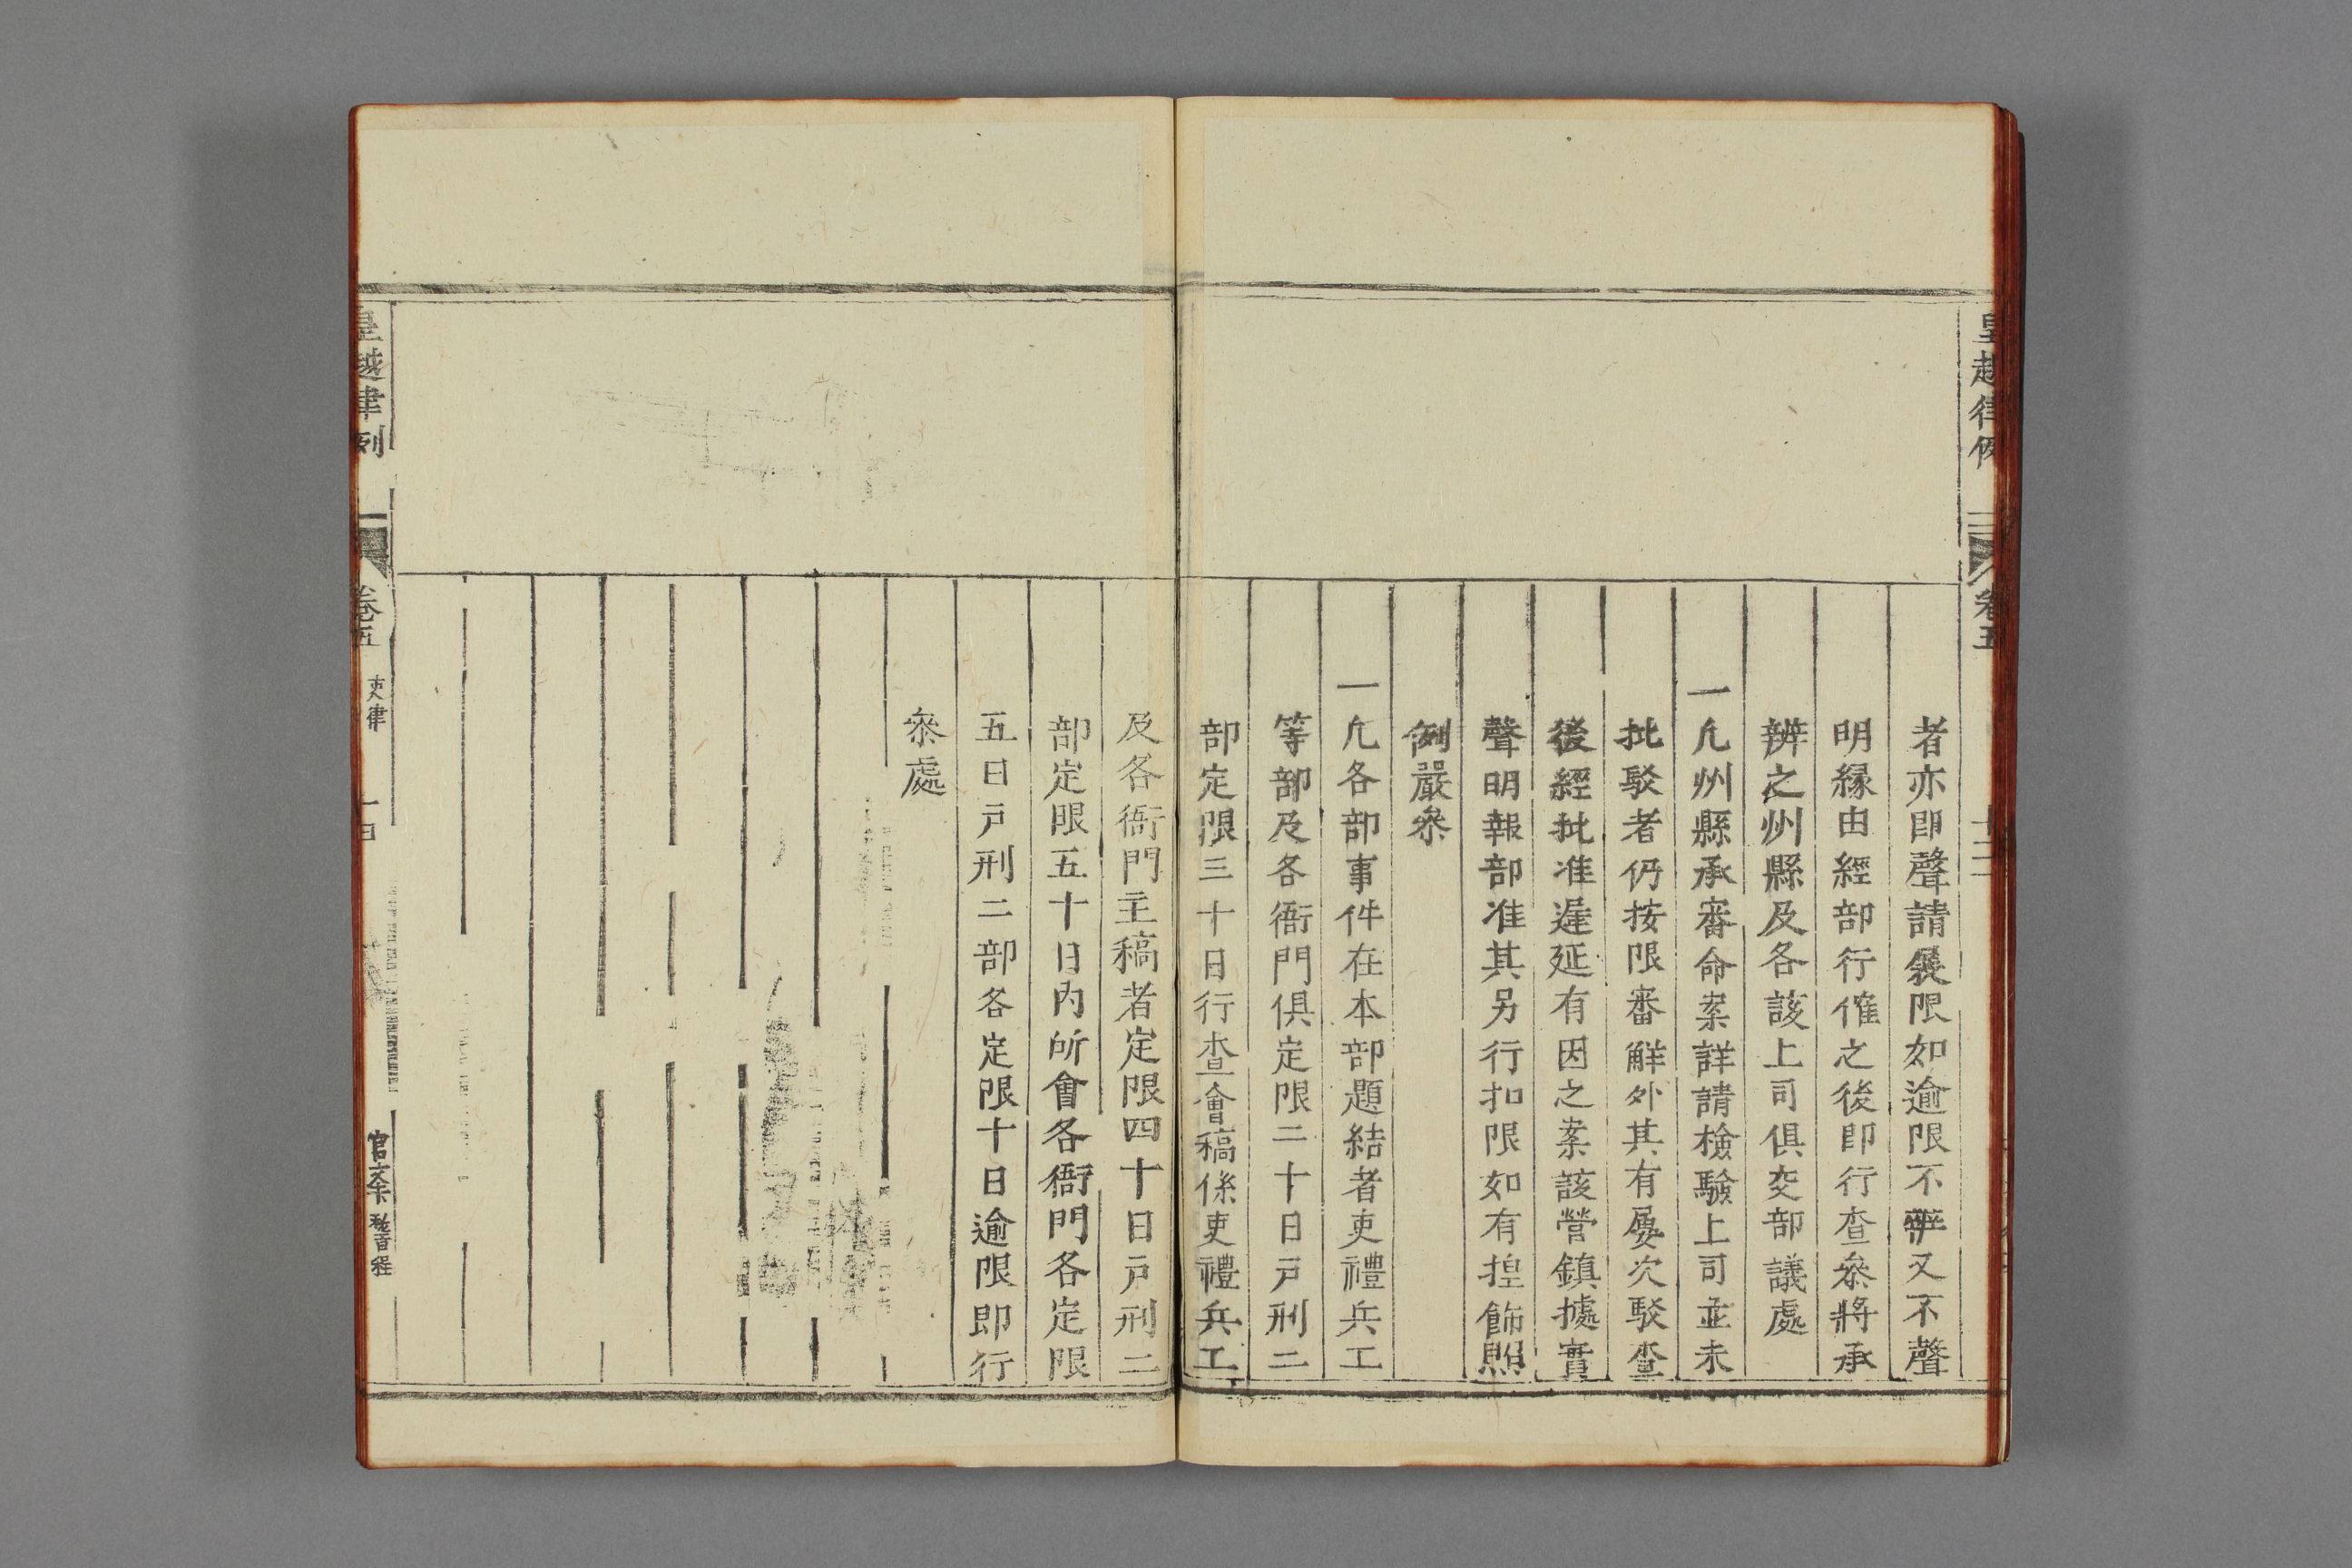 皇越律例
卷五
十三
者亦即聲請展限如逾限不辨又不聲
明縁由經部行催之後即行查叅將承
辨之州縣及各該上司俱交部議處
一凢州縣承審命案詳請檢驗上司並未
批駁者仍按限審觧外其有屢次駁查
後經批准遲延有因之案該營鎮據實
聲明報部准其另行扣限如有揑飾照
例嚴叅
一凢各部事件在本部題結者吏禮兵工
等部及各衙門俱定限二十日戸刑二
部定限三十日行查會稿係吏禮兵工
及各衙門主稿者定限四十日戸刑二
部定限五十日内所會各衙門各定限
五日戸刑二部各定限十日逾限即行
叅處
皇越律例
卷五
吏律
十四
官文書稽程